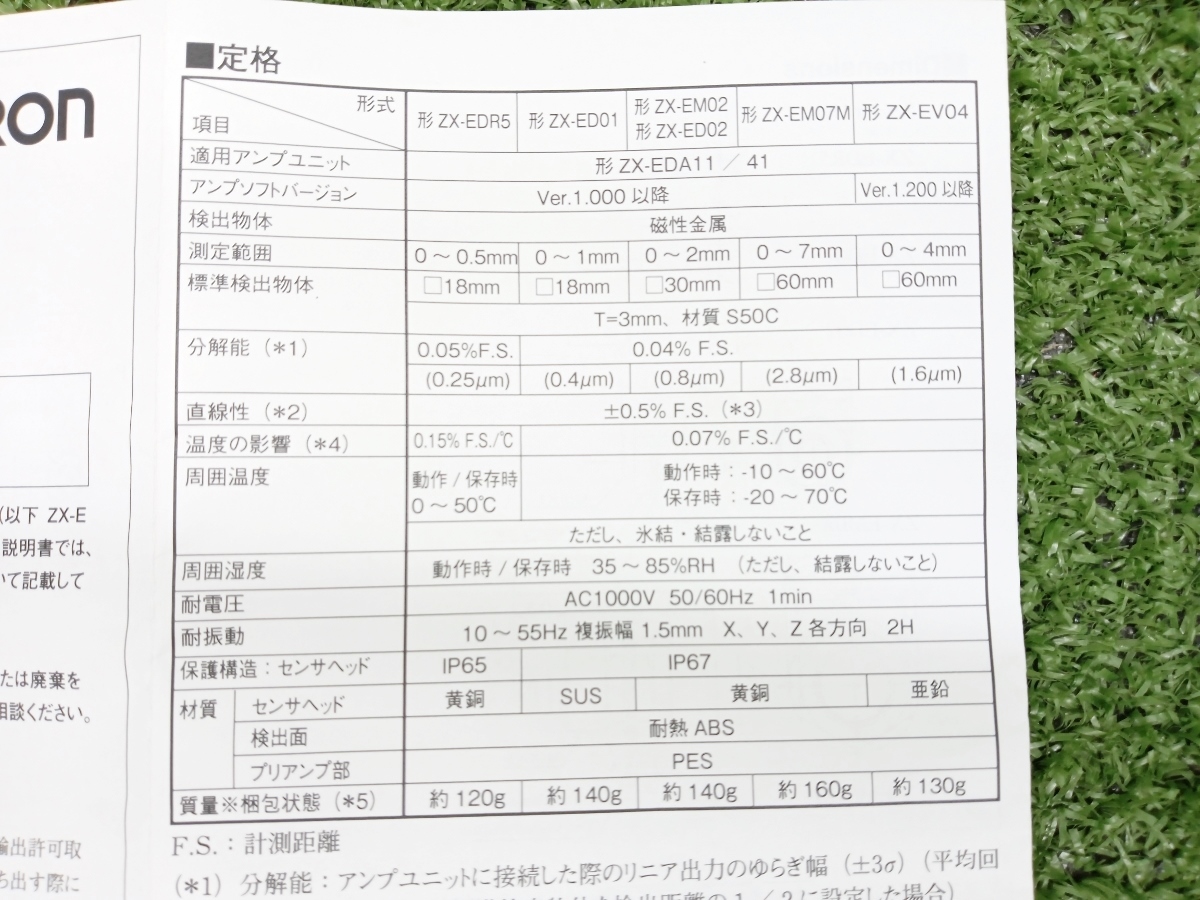 RON
(以下 ZX-E
説明書では、
いて記載して
たは廃棄を
相談ください。
輸出許可取
ち出す際に
■定格
形式
項目
形 ZX-EDR5
形 ZX-ED01
形 ZX-EM02
形 ZX-ED02
形 ZX-EM07M
形 ZX-EV04
適用アンプユニット
形 ZX-EDA11 / 41
アンプソフトバージョン
Ver.1.000 以降
Ver.1.200 以降
検出物体
磁性金属
測定範囲
0 ~ 0.5mm
0 ~ 1mm
0 ~ 2mm
0 ~ 7mm
0 ~ 4mm
標準検出物体
□18mm
□18mm
□30mm
□60mm
□60mm
T=3mm、材質 S50C
分解能 (*1)
0.05%F.S.
0.04% F.S.
(0.25μm)
(0.4μm)
(0.8μm)
(2.8μm)
(1.6μm)
直線性 (*2)
±0.5% F.S. (*3)
温度の影響 (*4)
0.15% F.S./℃
0.07% F.S./℃
周囲温度
動作 / 保存時
0 ~ 50℃
動作時 : -10 ~ 60℃
保存時 : -20 ~ 70℃
ただし、氷結・結露しないこと
周囲湿度
動作時 / 保存時 35 ~ 85%RH (ただし、結露しないこと)
耐電圧
AC1000V 50/60Hz 1min
耐振動
10 ~ 55Hz 複振幅 1.5mm X、Y、Z 各方向 2H
保護構造 : センサヘッド
IP65
IP67
材質
センサヘッド
黄銅
SUS
黄銅
亜鉛
検出面
耐熱 ABS
プリアンプ部
PES
質量※梱包状態 (*5)
約 120g
約 140g
約 140g
約 160g
約 130g
F.S. : 計測距離
(*1) 分解能 : アンプユニットに接続した際のリニア出力のゆらぎ幅 (±3σ) (平均回
検出距離の 1 / 2 に設定した場合)